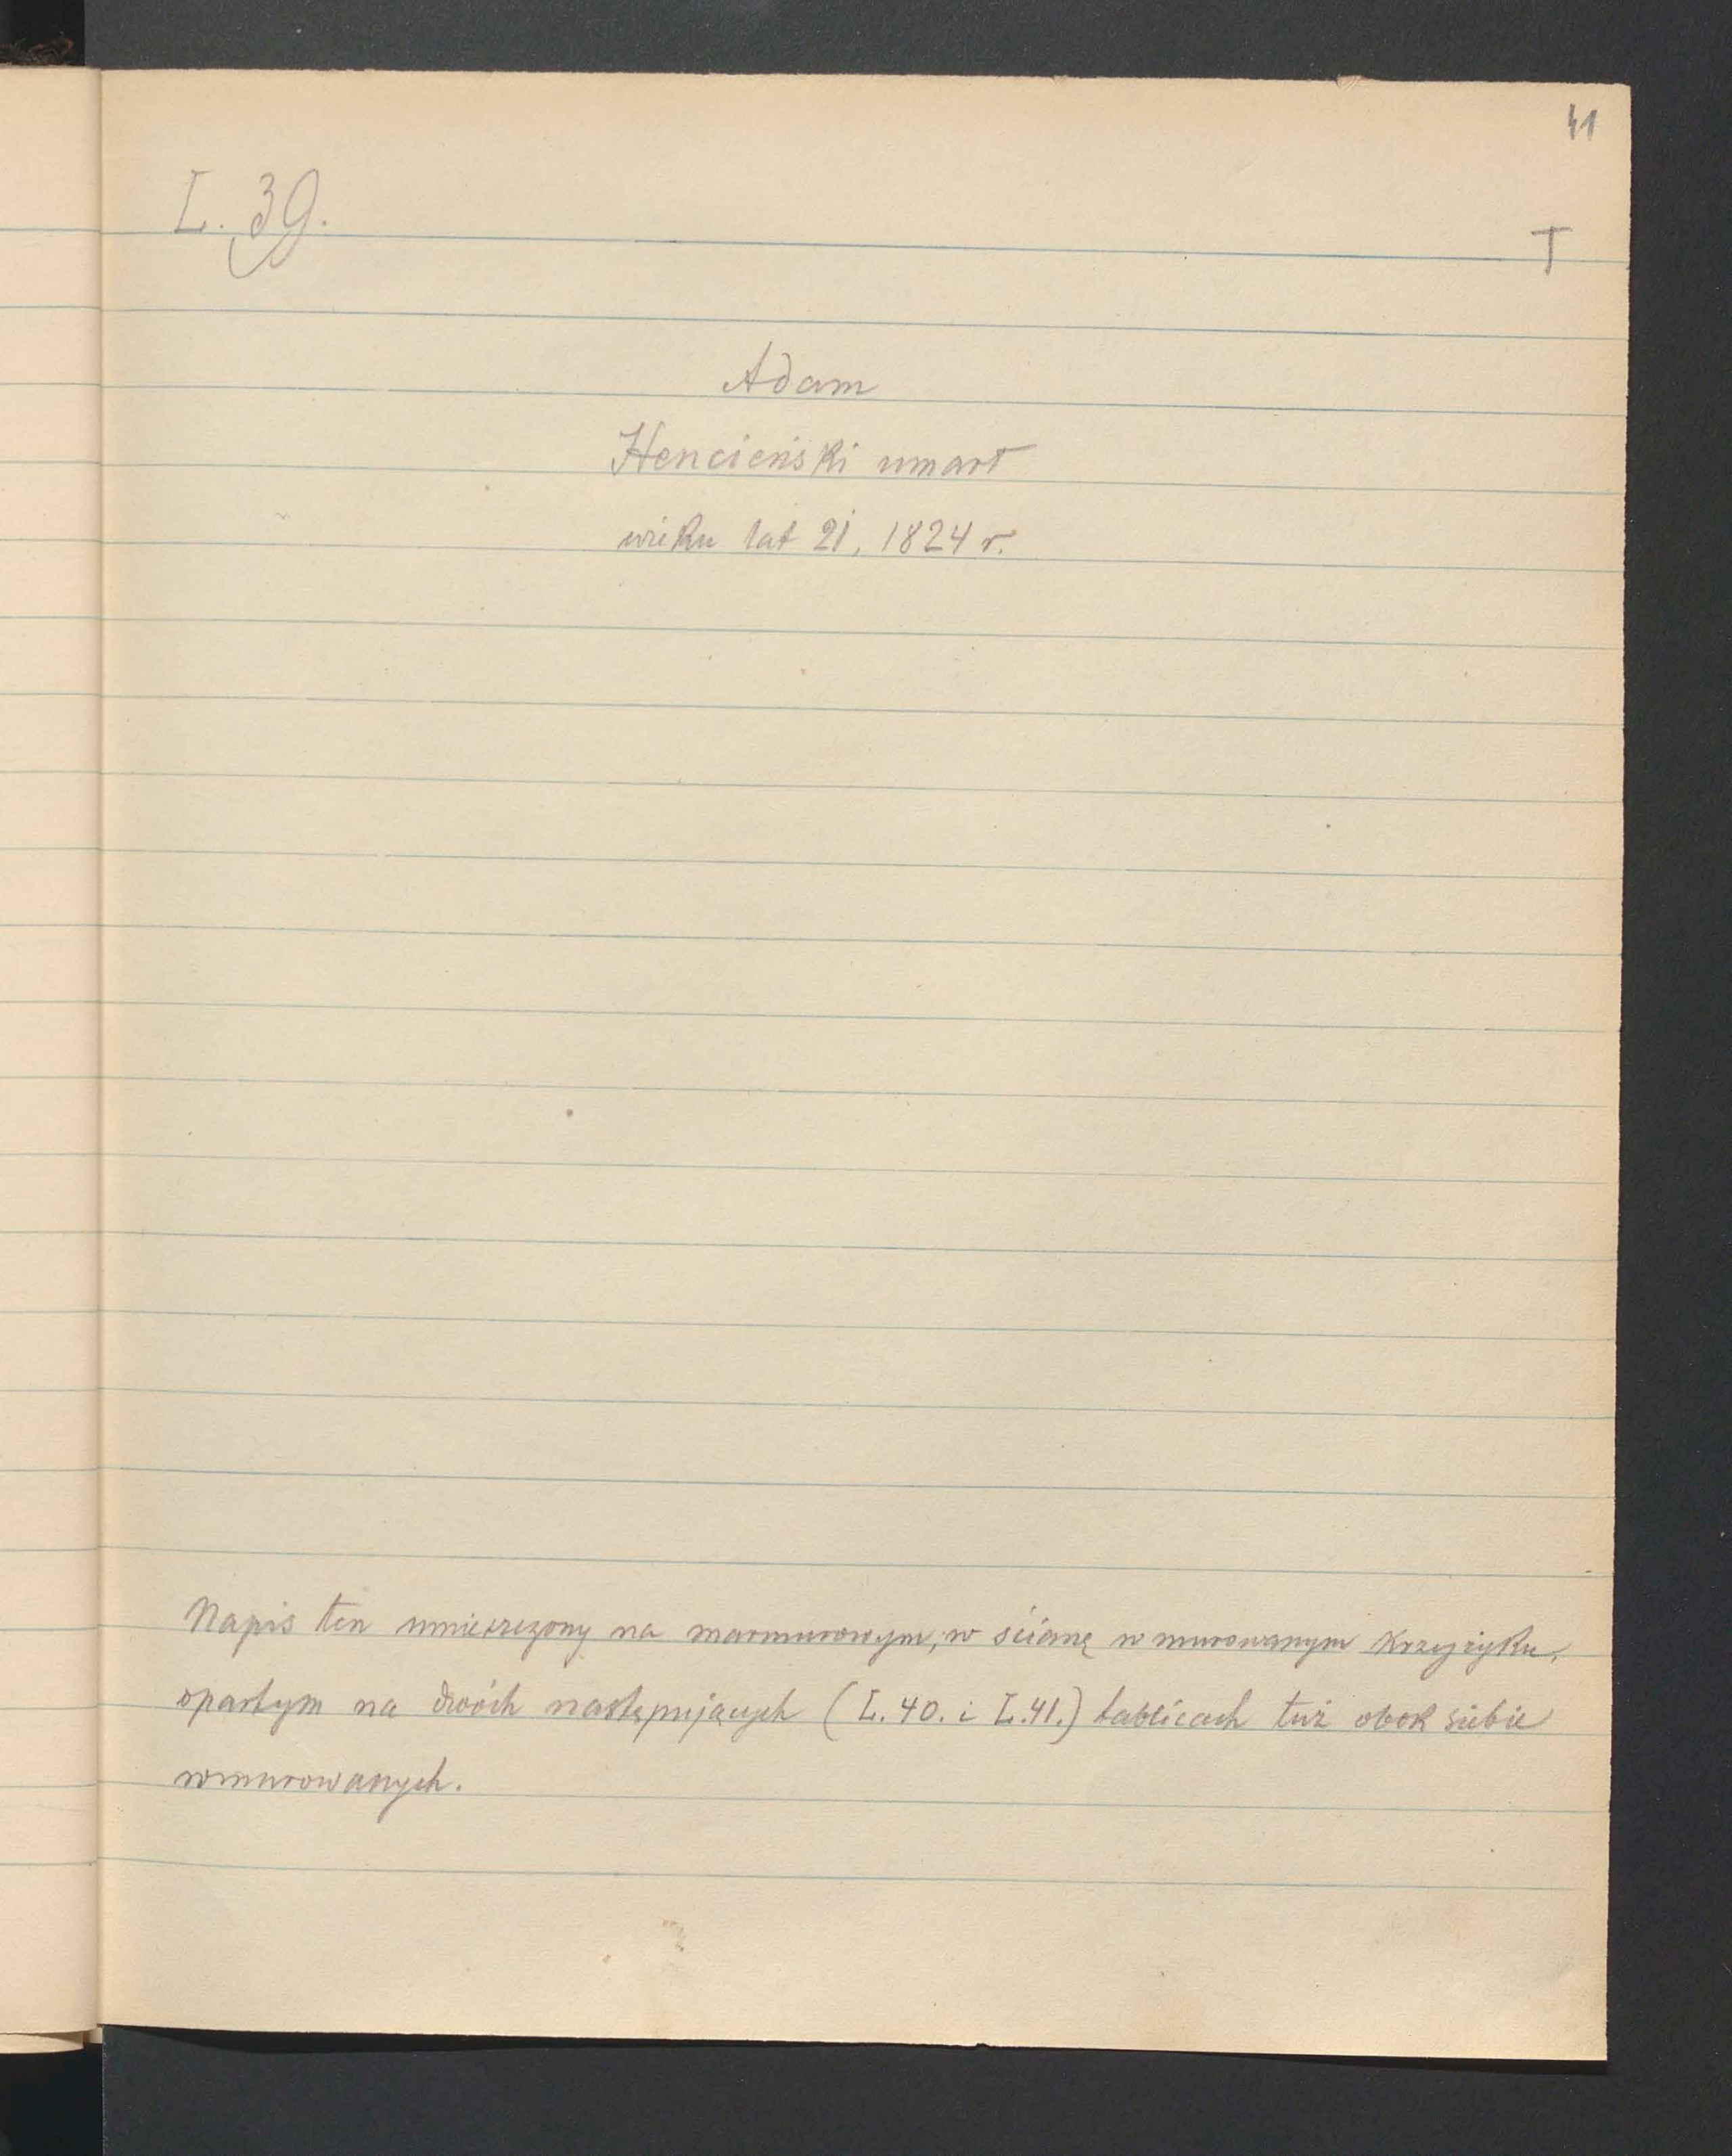 41
L. 39.
T
Adam
Hencieński umarł
wieku lat 21, 1824 r.
Napis ten umieszczony na marmurowym, w ścianę wmurowanym krzyżyku,
opartym na dwóch następujących (L. 40. i L. 41.) tablicach tuż obok siebie
wmurowanych.